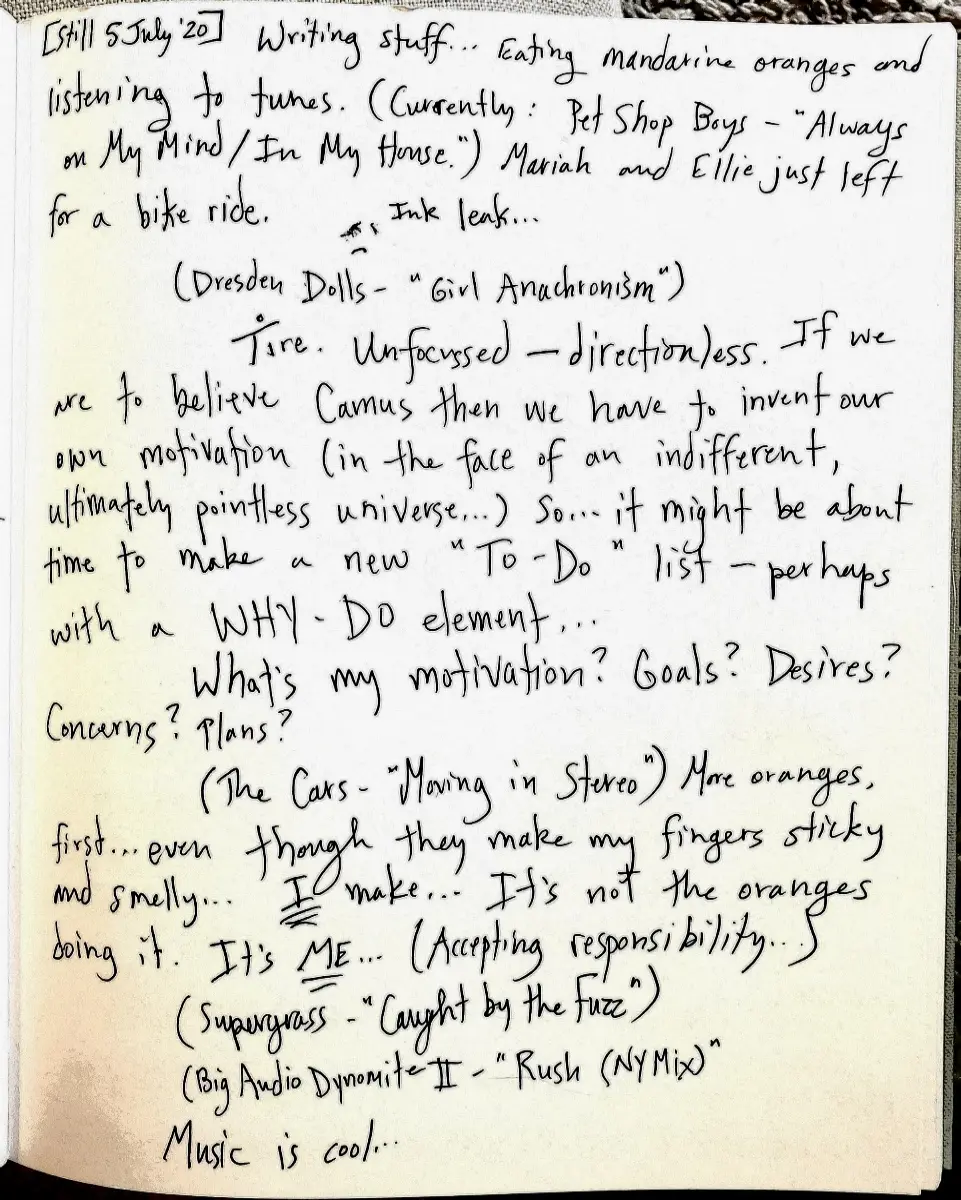 [Still 5 July '20] Writing stuff... Eating mandarine oranges and
listening to tunes. (Currently: Pet Shop Boys - "Always
on My Mind/In My House.") Mariah and Ellie just left
for a bike ride. Ink leak...
(Dresden Dolls - "Girl Anachronism")
Tire. Unfocussed — directionless. If we
are to believe Camus then we have to invent our
own motivation (in the face of an indifferent,
ultimately pointless universe...) So... it might be about
time to make a new "To-Do" list — perhaps
with a WHY-DO element...
What's my motivation? Goals? Desires?
Concerns? Plans?
(The Cars - "Moving in Stereo") More oranges,
first... even though they make my fingers sticky
and smelly... I make... It's not the oranges
doing it. It's ME... (Accepting responsibility...)
(Supergrass - "Caught by the Fuzz")
(Big Audio Dynomite II - "Rush (NY Mix)"
Music is cool...